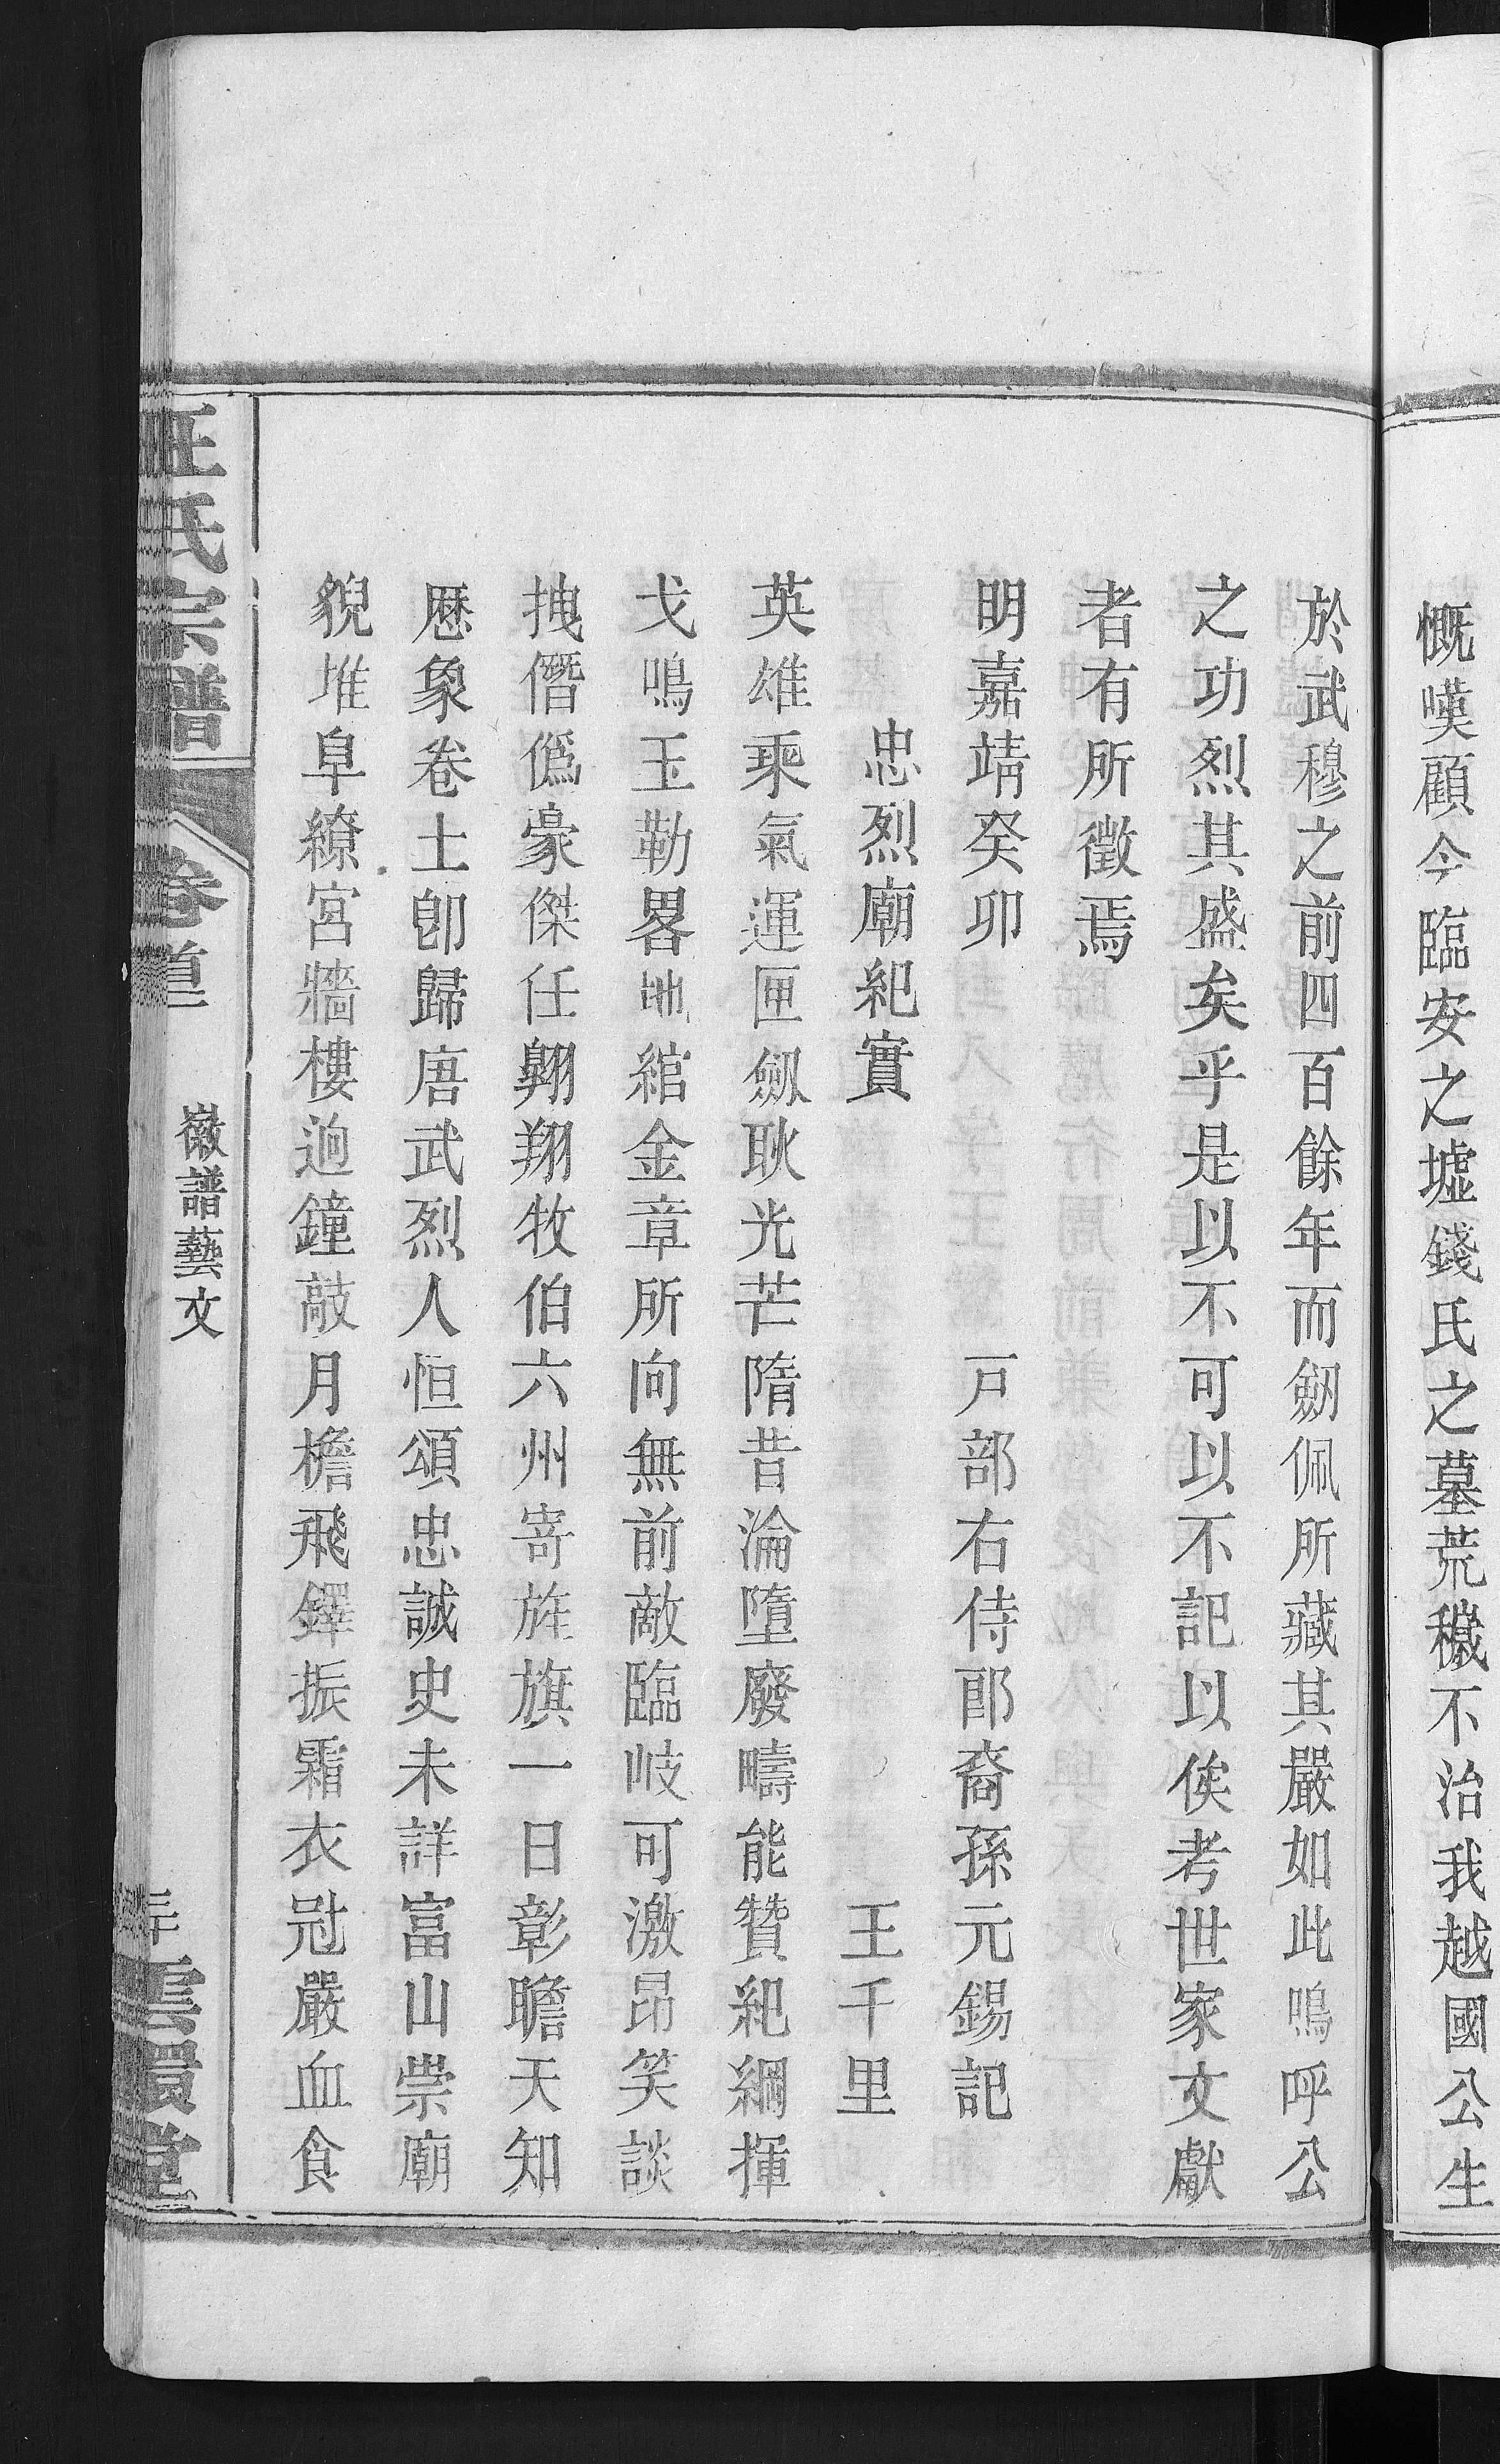 慨嘆顧今臨安之墟錢氏之墓荒穢不治我越國公生
於武穆之前四百餘年而劒佩所藏其嚴如此嗚呼公
之功烈其盛矣乎是以不可以不記以俟考世家文獻
者有所徵焉
明嘉靖癸卯 戸部右侍郎裔孫元錫記
忠烈廟紀實 王千里
英雄乘氣運匣劔耿光芒隋昔淪墮廢疇能贊紀綱揮
戈鳴玉勒畧地綰金章所向無前敵臨岐可激昂笑談
拽僭僞豪傑任翺翔牧伯六州寄旌旗一日彰瞻天知
厯象卷土卽歸唐武烈人恒頌忠誠史未詳富山崇廟
貌堆阜繚宮牆樓逈鐘敲月檐飛鐸振霜衣冠嚴血食
汪氏宗譜 卷首 徽譜藝文 雲環堂